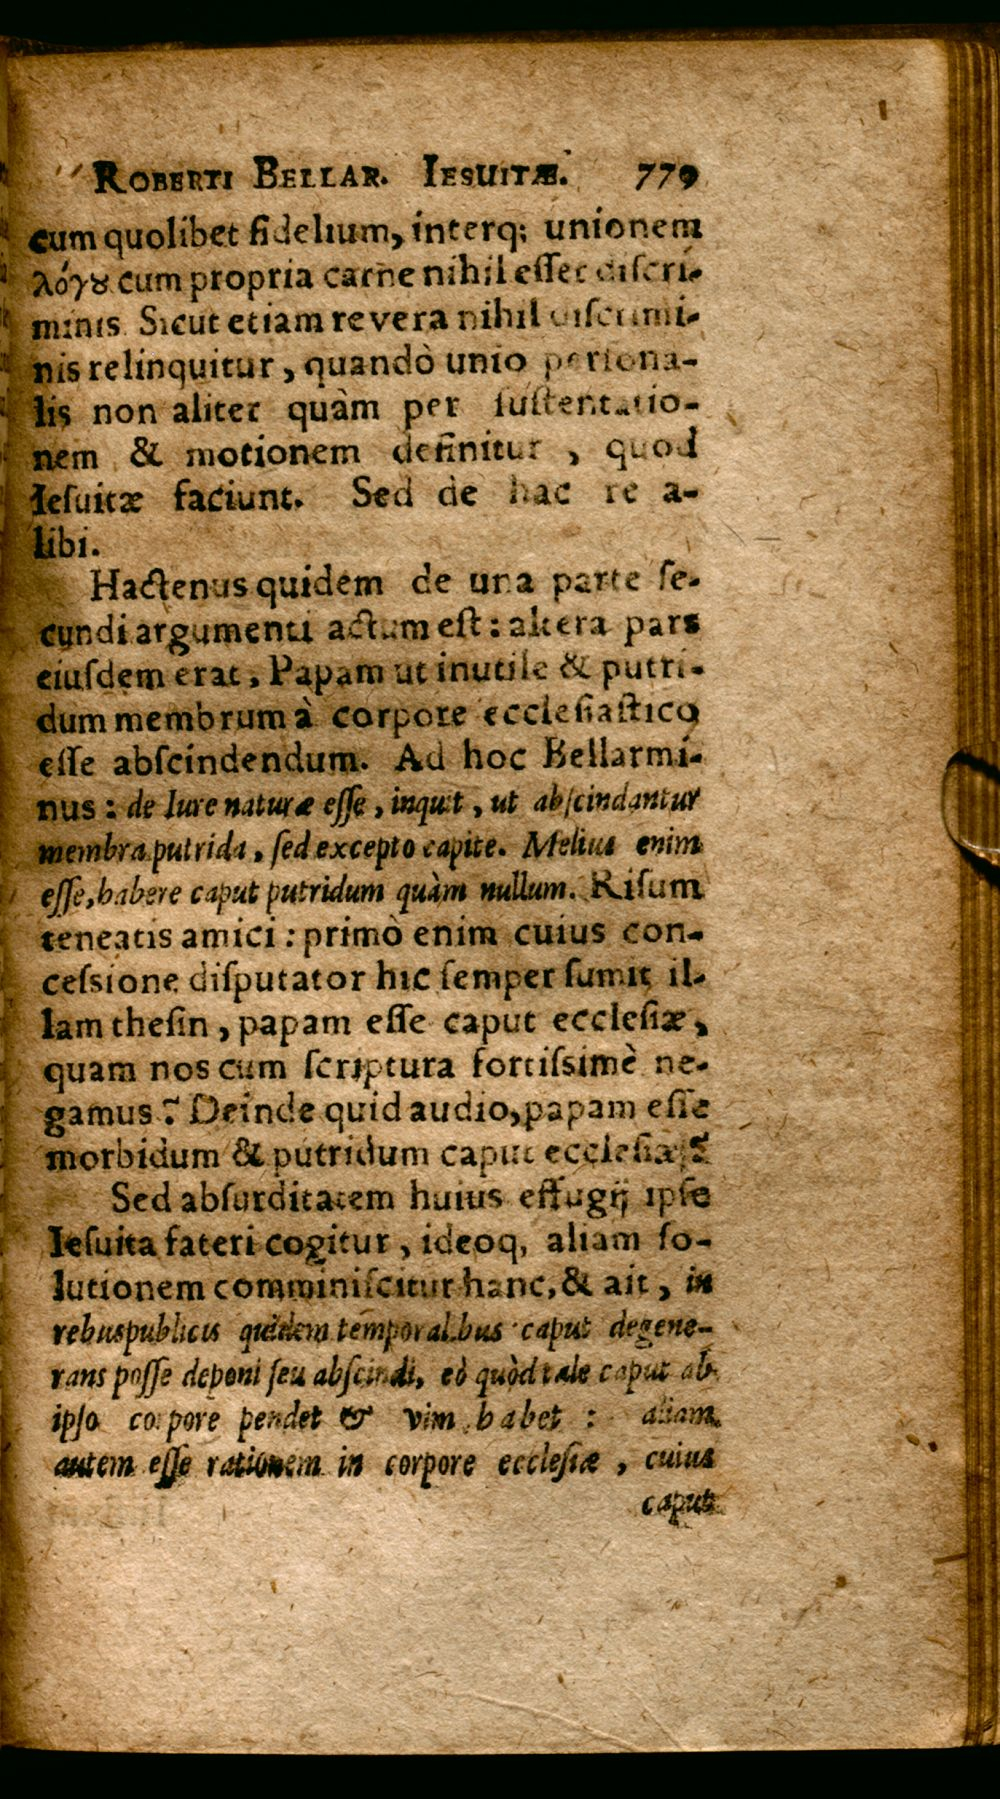 ROBERTI BELLAR. IESUITÆ. 779
cum quolibet fidelium, interq; unionem
λόγȣ cum propria carne nihil eſſet diſcri-
minis. Sicut etiam re vera nihil diſcrimi-
nis relinquitur, quandò unio perſona-
lis non aliter quàm per ſuſtentatio-
nem & motionem definitur, quod
Ieſuitæ faciunt. Sed de hac re a-
libi.
Hactenus quidem de una parte ſe-
cundi argumenti actum eſt: altera pars
eiuſdem erat, Papam ut inutile & putri-
dum membrum à corpore eccleſiaſtico
eſſe abſcindendum. Ad hoc Bellarmi-
nus: de Iure naturæ eſſe, inquit, ut abſcindantur
membra putrida, ſed excepto capite. Melius enim
eſſe, habere caput putridum quàm nullum. Riſum
teneatis amici: primò enim cuius con-
ceſsione diſputator hic ſemper ſumit il-
lam theſin, papam eſſe caput eccleſiæ,
quam nos cum ſcriptura fortiſsimè ne-
gamus? Deinde quid audio, papam eſſe
morbidum & putridum caput eccleſiæ?
Sed abſurditatem huius effugij ipſe
Ieſuita fateri cogitur, ideoq, aliam ſo-
lutionem comminiſcitur hanc, & ait, in
rebuspublicis quidem temporalibus caput degene-
rans poſſe deponi ſeu abſcindi, eò quòd tale caput ab
ipſo corpore pendet & vim habet: aliam
autem eſſe rationem in corpore eccleſiæ, cuius
caput